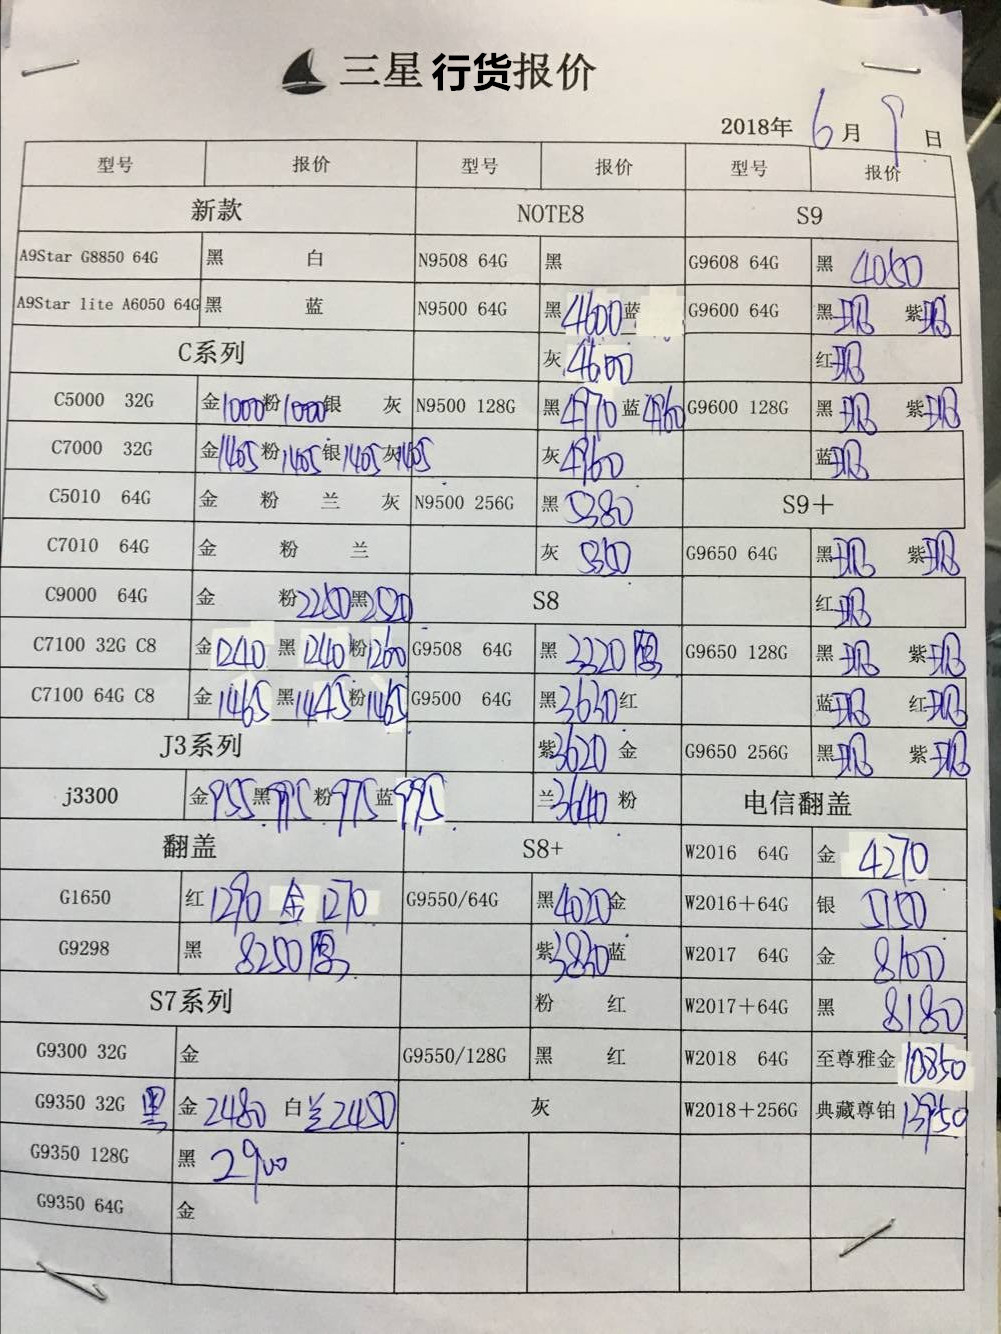 三星 行货报价
2018年 6 月 9 日
型号 报价 型号 报价 型号 报价
新款 NOTE8 S9
A9Star G8850 64G 黑 白 N9508 64G 黑 G9608 64G 黑 4050
A9Star lite A6050 64G 黑 蓝 N9500 64G 黑 4600 蓝 G9600 64G 黑 现 紫 现
C系列 灰 4600 红 现
C5000 32G 金 1000 粉 1000 银 灰 N9500 128G 黑 4970 蓝 4960 G9600 128G 黑 现 紫 现
C7000 32G 金 1405 粉 1405 银 1405 灰 1405 灰 4960 蓝 现
C5010 64G 金 粉 兰 灰 N9500 256G 黑 5380 S9+
C7010 64G 金 粉 兰 灰 5350 G9650 64G 黑 现 紫 现
C9000 64G 金 粉 2260 黑 2520 S8 红 现
C7100 32G C8 金 1240 黑 1240 粉 1260 G9508 64G 黑 3320 G9650 128G 黑 现 紫 现
C7100 64G C8 金 1465 黑 1445 粉 1465 G9500 64G 黑 3630 红 蓝 现 红 现
J3系列 紫 3620 金 G9650 256G 黑 现 紫 现
j3300 金 955 黑 995 粉 975 蓝 995 兰 3640 粉 电信翻盖
翻盖 S8+ W2016 64G 金 4270
G1650 红 1290 金 1270 G9550/64G 黑 4020 金 W2016+64G 银 5150
G9298 黑 8250 紫 3830 蓝 W2017 64G 金 8100
S7系列 粉 红 W2017+64G 黑 8180
G9300 32G 金 G9550/128G 黑 红 W2018 64G 至尊雅金 10850
G9350 32G 黑 金 2480 白 兰 2450 灰 W2018+256G 典藏尊铂 13950
G9350 128G 黑 2900
G9350 64G 金